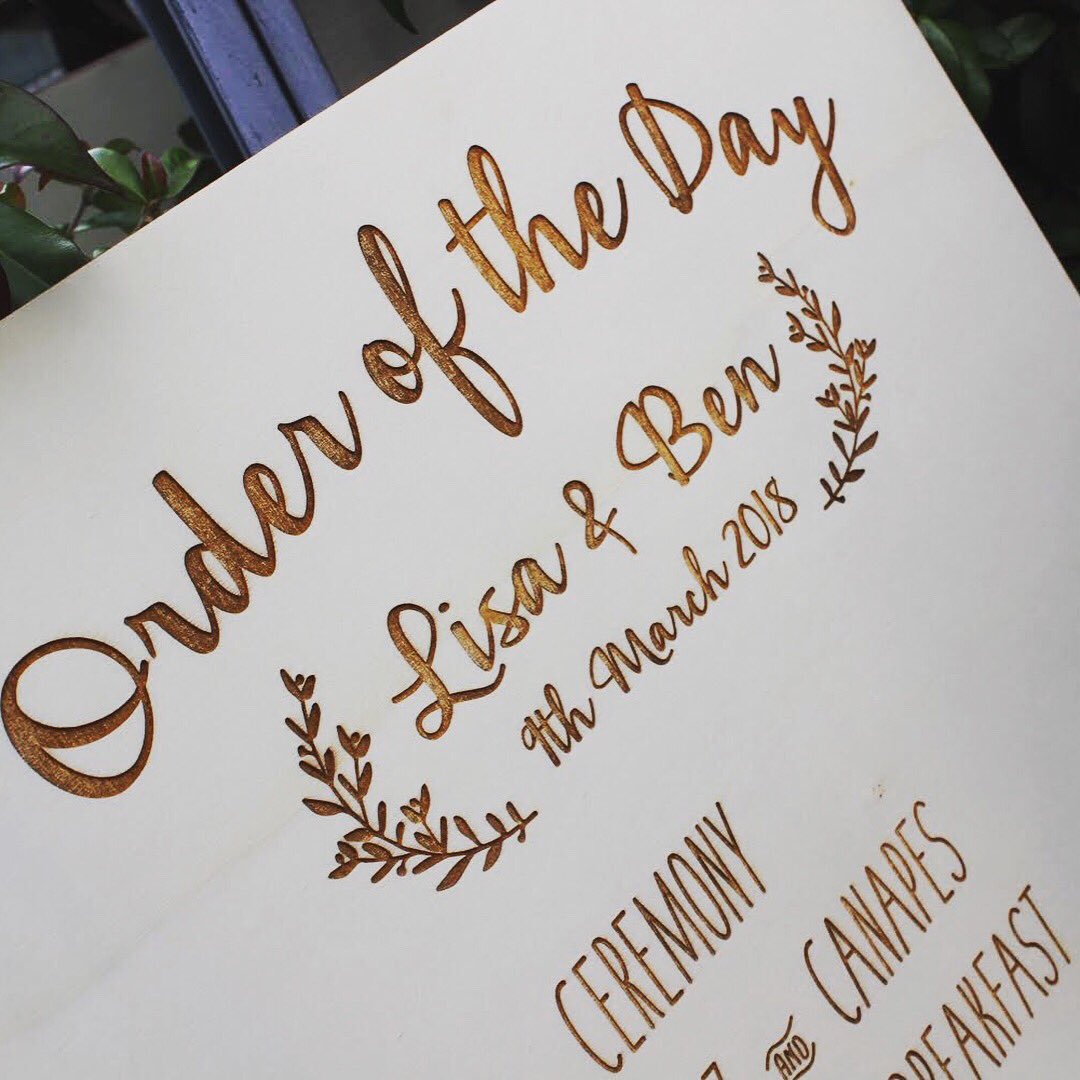 Order of the Day
Lisa & Ben
9th March 2018
CEREMONY
AND CANAPES
BREAKFAST